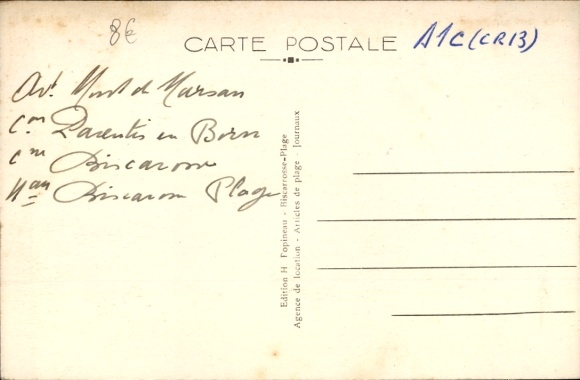 8€
CARTE POSTALE
A1C (CR13)
Art Mont de Marsan
Con Parentis en Born
Cne Biscarosse
Hau Biscaross Plage
Edition H Fopineau - Biscarrosse-Plage
Agence de location - Articles de plage - Journaux